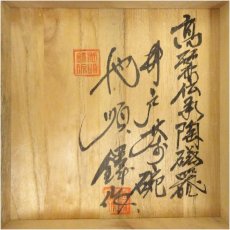 高麗伝承陶磁器
井戸茶碗
池順鐸作